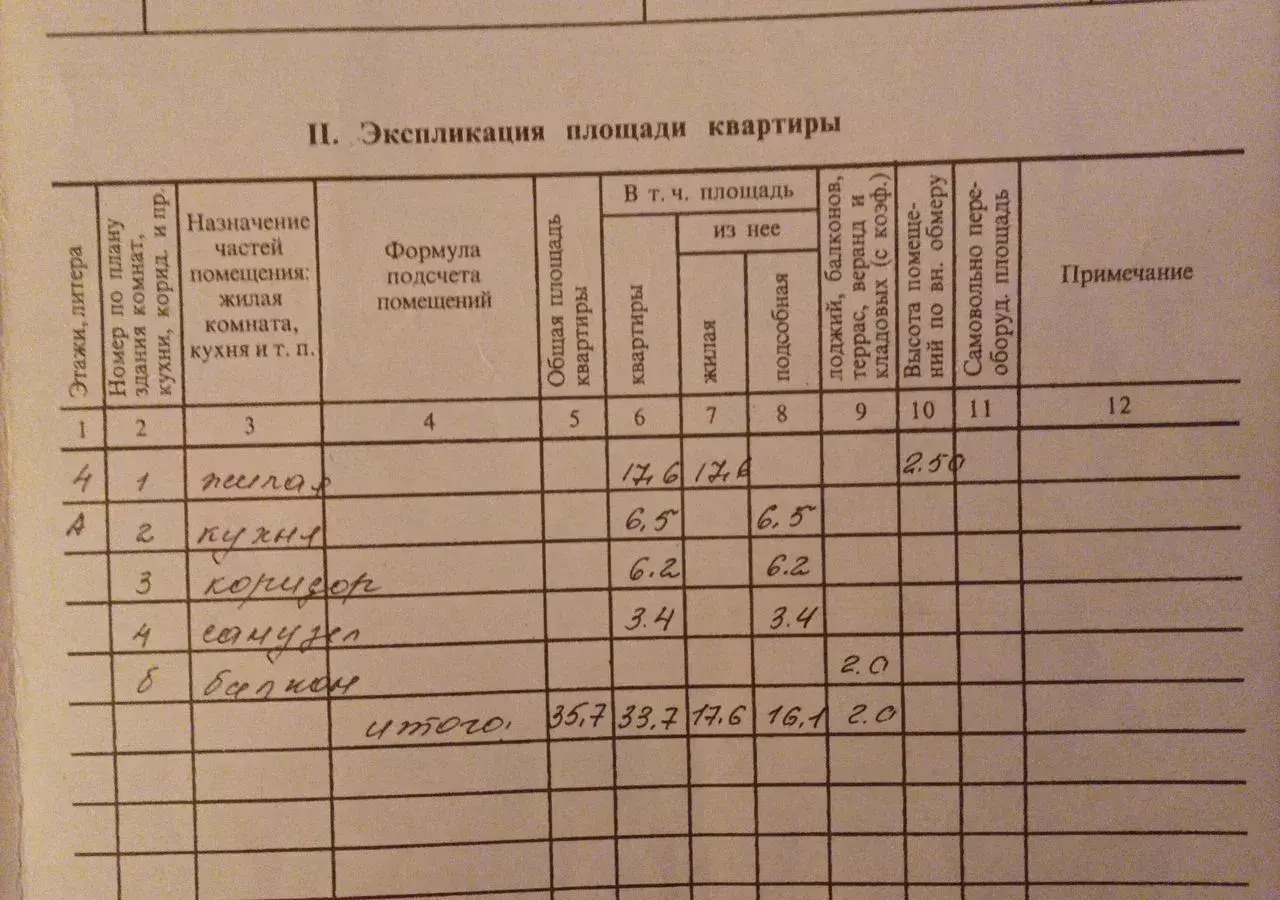 II. Экспликация площади квартиры
Этажи, литера
Номер по плану
здания комнат,
кухни, корид. и пр.
Назначение
частей
помещения:
жилая
комната,
кухня и т. п.
Формула
подсчета
помещений
Общая площадь
квартиры
В т. ч. площадь
квартиры
из нее
жилая
подсобная
лоджий, балконов,
террас, веранд и
кладовых (с коэф.)
Высота помеще-
ний по вн. обмеру
Самовольно пере-
оборуд. площадь
Примечание
1 2 3 4 5 6 7 8 9 10 11 12
4 1 жилая 17,6 17,6 2.50
А 2 кухня 6,5 6,5
3 коридор 6.2 6.2
4 санузел 3.4 3.4
б балкон 2.0
итого. 35,7 33,7 17.6 16,1 2.0